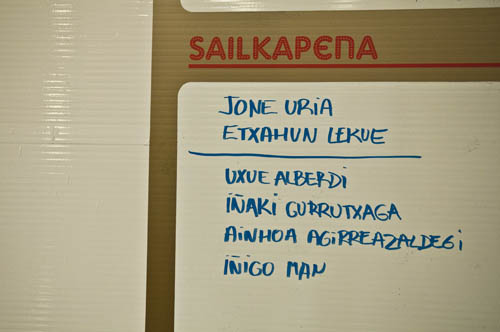 SAILKAPENA
JONE URIA
ETXAHUN LEKUE
UXUE ALBERDI
IÑAKI GURRUTXAGA
AINHOA AGIRREAZALDEGI
IÑIGO MAN